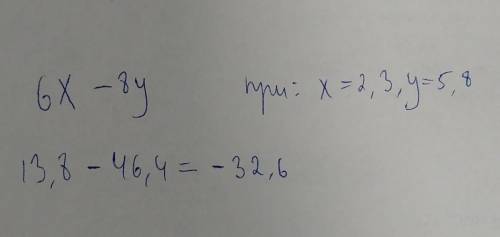 6x - 8y при: x = 2,3, y = 5,8
13,8 - 46,4 = -32,6